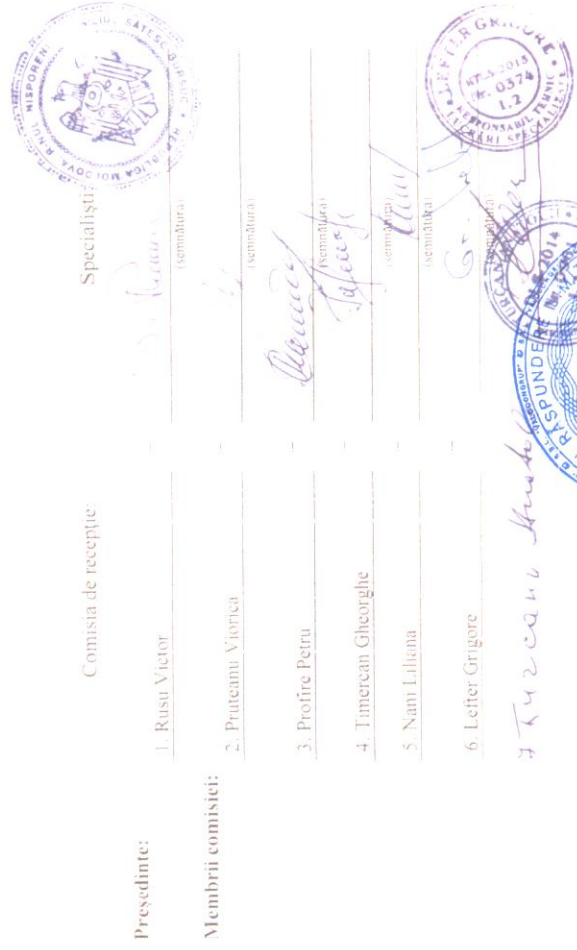 Comisia de recepție: Specialiști:
Președinte: 1. Rusu Victor -
(semnătura)
Membrii comisiei: 2. Pruteanu Viorica -
(semnătura)
3. Profire Petru -
(semnătura)
4. Timercan Gheorghe -
(semnătura)
5. Nani Liliana -
(semnătura)
6. Lefter Grigore -
(semnătura)
REPUBLICA MOLDOVA
R-NUL NISPORENI
SĂTESC
LEFTER GRIGORE
2015
Nr. 0374
1.2
RESPONSABIL TEHNIC
LUCRĂRI SPECIALIZATE
2014
RĂSPUNDERE